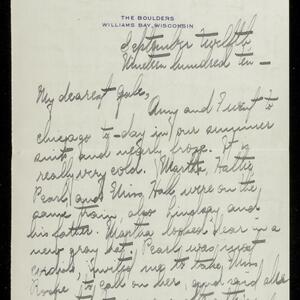 THE BOULDERS
WILLIAMS BAY, WISCONSIN
September Twelfth
Nineteen hundred ten -
My dearest Gale,
Amy and I went to
Chicago to-day in our summer
suits and nearly froze. It is
really very cold. Martha, Hattie
Pearl, and Miss Hale were on the
same train, also Lindsay and
his father. Martha looked dear in a
new gray hat, Pearl was most
cordial, invited me to take Miss
to call on her, and said she